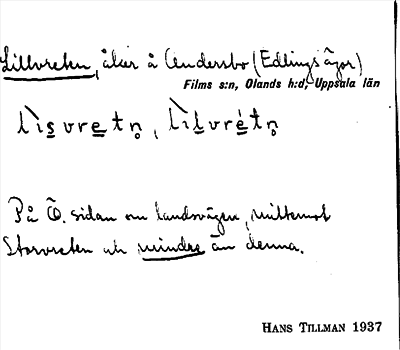 Lillvreten, åker å Andersbo (Edlings ägor)
Films s:n, Olands h:d, Uppsala län
lìsvretn̥, lìlvrétn̥
På Ö. sidan om landsvägen, mittemot
Storvreten och mindre än denna.
HANS TILLMAN 1937